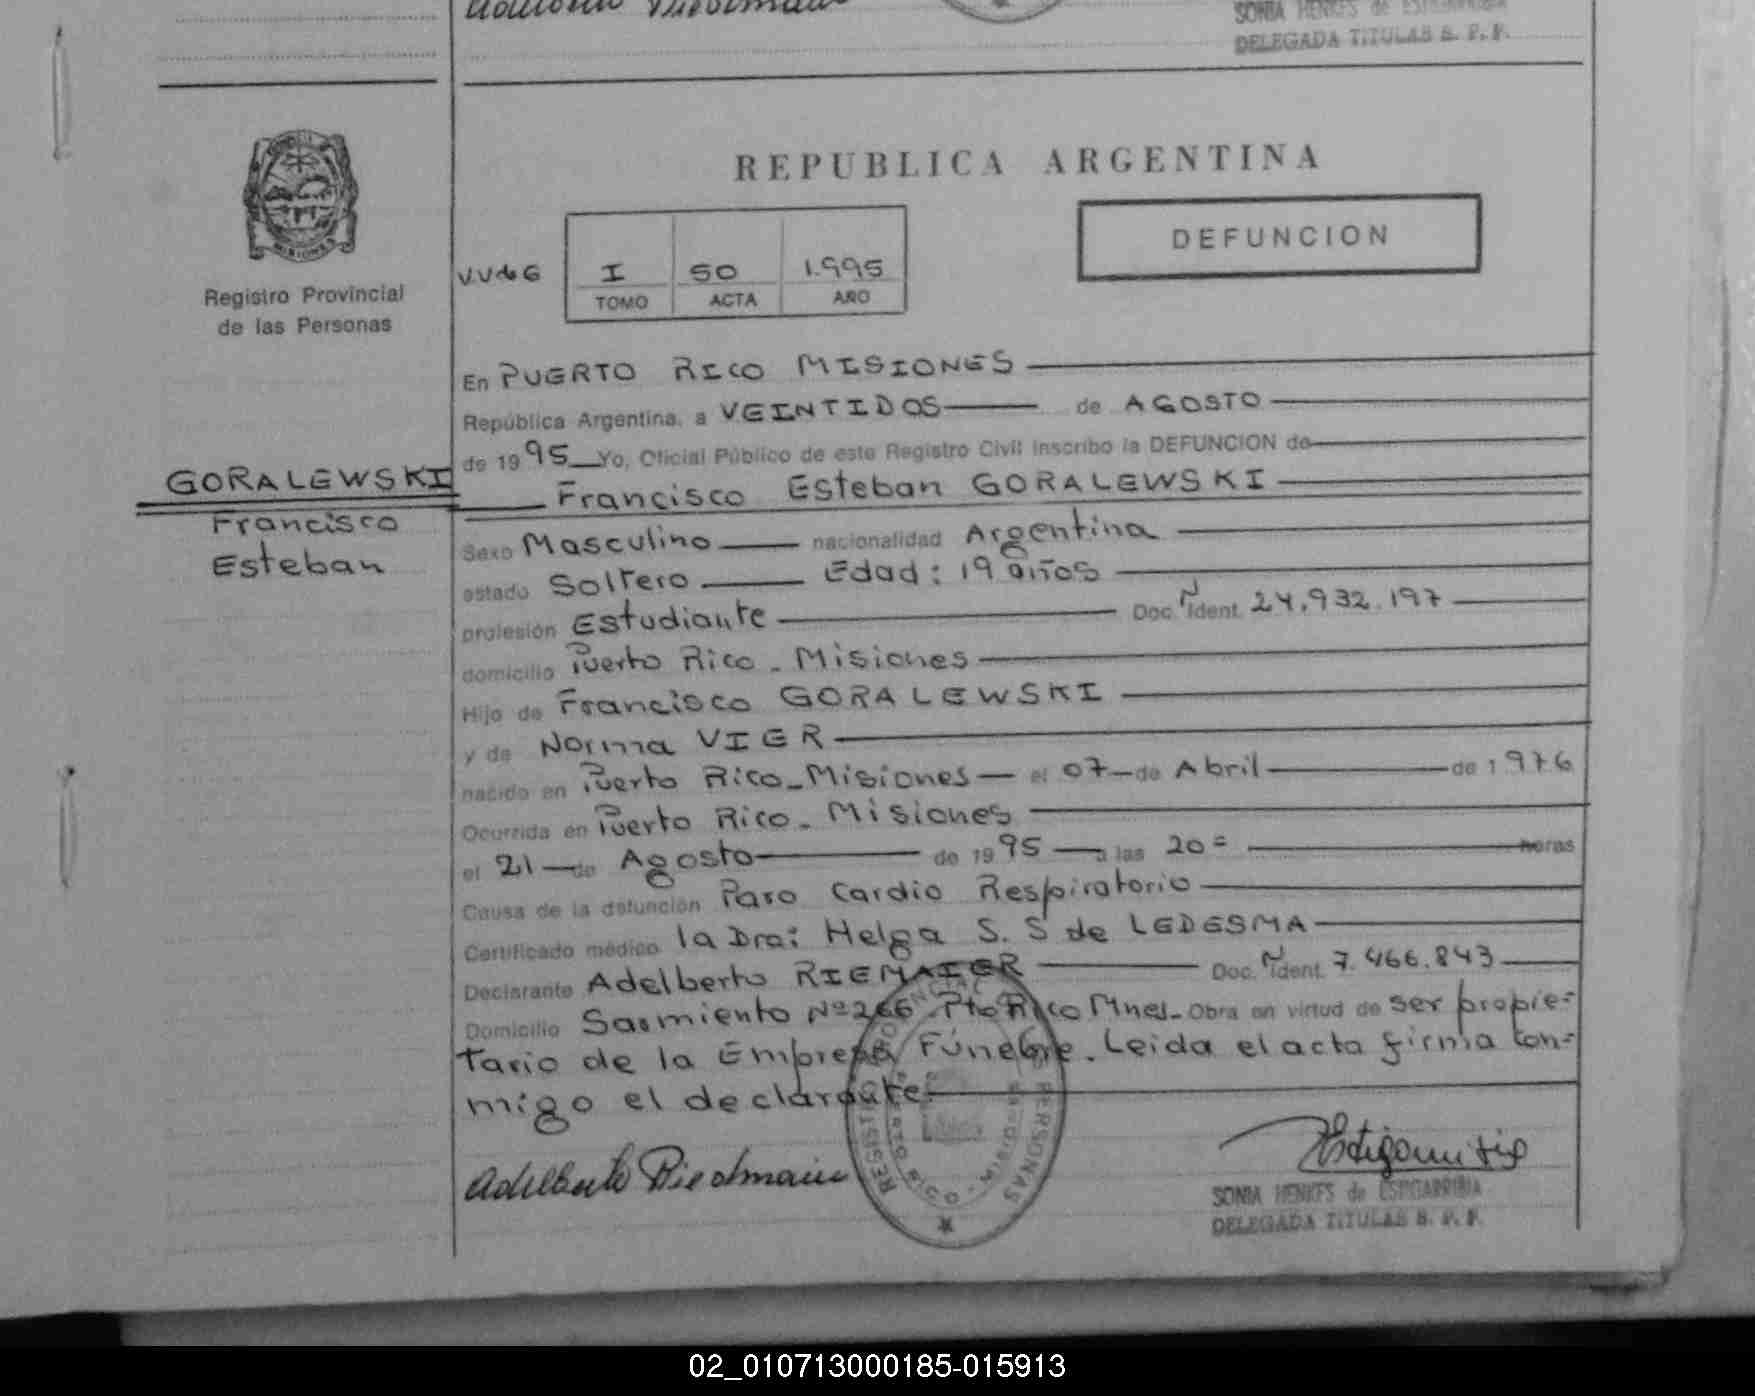 SONIA HENKES de ESTIGARRIBIA
DELEGADA TITULAR R. P. P.
REPUBLICA ARGENTINA
DEFUNCION
V.V de G
I 50 1.995
TOMO ACTA AÑO
Registro Provincial
de las Personas
MISIONES
En PUERTO RICO MISIONES
República Argentina, a VEINTIDOS de AGOSTO
de 1995 Yo, Oficial Público de este Registro Civil inscribo la DEFUNCION de
GORALEWSKI
Francisco
Esteban
Francisco Esteban GORALEWSKI
Sexo Masculino nacionalidad Argentina
estado Soltero Edad: 19 años
profesión Estudiante Doc. N Ident. 24.932.197
domicilio Puerto Rico - Misiones
Hijo de Francisco GORALEWSKI
y de Norma VIER
nacido en Puerto Rico - Misiones el 07 de Abril de 1976
Ocurrida en Puerto Rico - Misiones
el 21 de Agosto de 1995 a las 20= horas
Causa de la defunción Paro Cardio Respiratorio
Certificado médico la Dra: Helga S. S de LEDESMA
Declarante Adelberto RIEMAIER Doc. N Ident. 7.466.843
Domicilio Sarmiento Nº 266 Pto Rico Mnes. Obra en virtud de ser propie=
tario de la Empresa Fúnebre. Leida el acta firma con=
migo el declarante
REGISTRO PROVINCIAL DE LAS PERSONAS
PUERTO RICO - MISIONES
SONIA HENKES de ESTIGARRIBIA
DELEGADA TITULAR R. P. P.
02_010713000185-015913